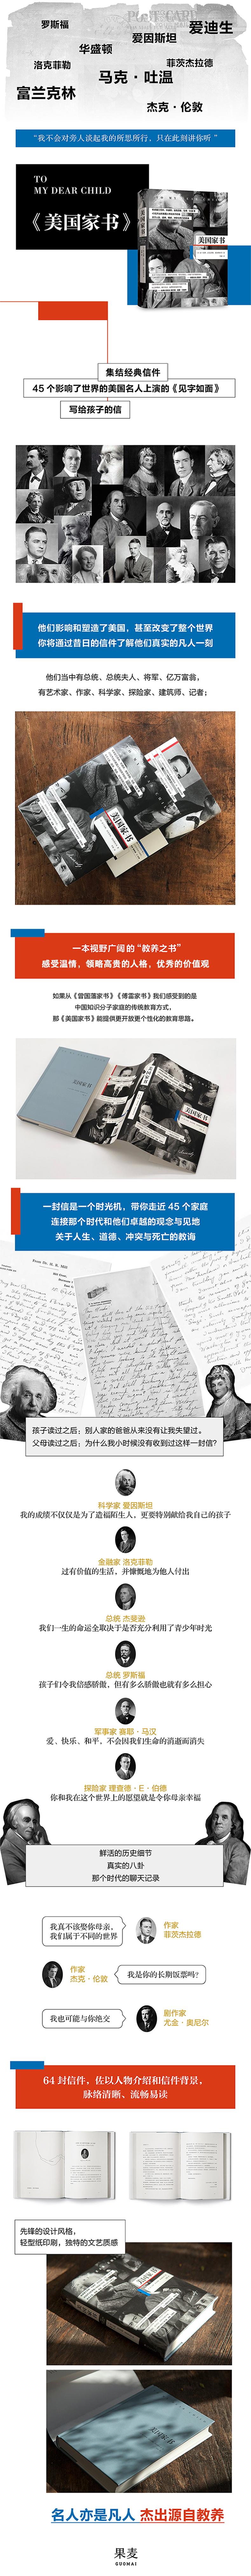 罗斯福
爱迪生
爱因斯坦
华盛顿
洛克菲勒
菲茨杰拉德
马克·吐温
富兰克林
杰克·伦敦
“我不会对旁人谈起我的所思所行，只在此刻讲你听 ”
TO
MY DEAR CHILD
《美国家书》
美国家书
集结经典信件
45 个影响了世界的美国名人上演的《见字如面》
写给孩子的信
他们影响和塑造了美国，甚至改变了整个世界
你将通过昔日的信件了解他们真实的凡人一刻
他们当中有总统、总统夫人、将军、亿万富翁，
有艺术家、作家、科学家、探险家、建筑师、记者；
美国家书
一本视野广阔的 “教养之书”
感受温情，领略高贵的人格，优秀的价值观
如果从《曾国藩家书》《傅雷家书》我们感受到的是
中国知识分子家庭的传统教育方式，
那《美国家书》能提供更开放更个性化的教育思路。
美国家书
一封信是一个时光机，带你走近 45 个家庭
连接那个时代和他们卓越的观念与见地
关于人生、道德、冲突与死亡的教诲
孩子读过之后：别人家的爸爸从来没有让我失望过。
父母读过之后：为什么我小时候没有收到过这样一封信？
科学家 爱因斯坦
我的成绩不仅仅是为了造福陌生人，更要特别献给我自己的孩子
金融家 洛克菲勒
过有价值的生活，并慷慨地为他人付出
总统 杰斐逊
我们一生的命运全取决于是否充分利用了青少年时光
总统 罗斯福
孩子们令我倍感骄傲，但有多么骄傲也就有多么担心
军事家 赛耶·马汉
爱、快乐、和平，不会因我们生命的消逝而消失
探险家 理查德·E·伯德
你和我在这个世界上的愿望就是令你母亲幸福
鲜活的历史细节
真实的八卦
那个时代的聊天记录
我真不该娶你母亲，
我们属于不同的世界
作家
菲茨杰拉德
作家
杰克·伦敦
我是你的长期饭票吗？
我也可能与你绝交
剧作家
尤金·奥尼尔
64 封信件，佐以人物介绍和信件背景，
脉络清晰、流畅易读
先锋的设计风格，
轻型纸印刷，独特的文艺质感
美国家书
名人亦是凡人 杰出源自教养
果麦
GUOMAI